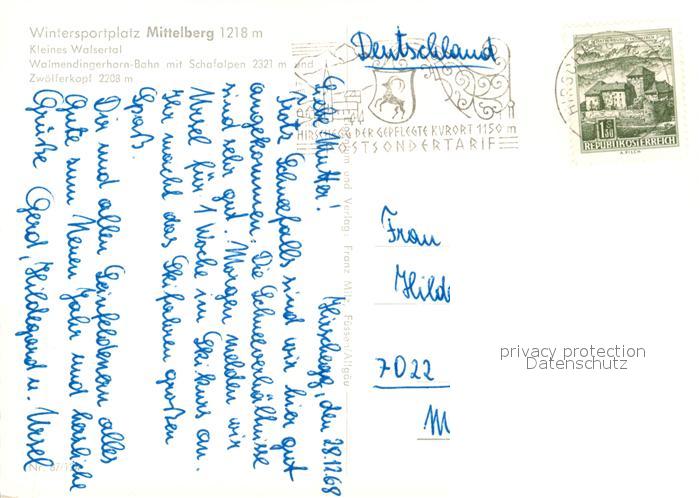 Wintersportplatz Mittelberg 1218 m
Kleines Walsertal
Walmendingerhorn-Bahn mit Schafalpen 2321 m und
Zwölferkopf 2208 m
Hirschegg, den 28.12.68
Liebe Mutter!
Trotz Schneefalls sind wir hier gut
angekommen. Die Schneeverhältnisse
sind sehr gut. Morgen melden wir
Ursel für 1 Woche im Skikurs an.
Ihr macht das Skifahren großen
Spaß.
Dir und allen Leinfeldenern alles
Gute zum Neuen Jahr und herzliche
Grüße Gerd, Hildegard u. Ursel
Nr. 87/1
und Verlag: Franz Milz, Füssen/Allgäu
Deutschland
HIRSCHEGG DER GEPFLEGTE KURORT 1150 m
POSTSONDERTARIF
HIRSCH
1.50
REPUBLIK ÖSTERREICH
Frau
Hild
7022
M
privacy protection
Datenschutz